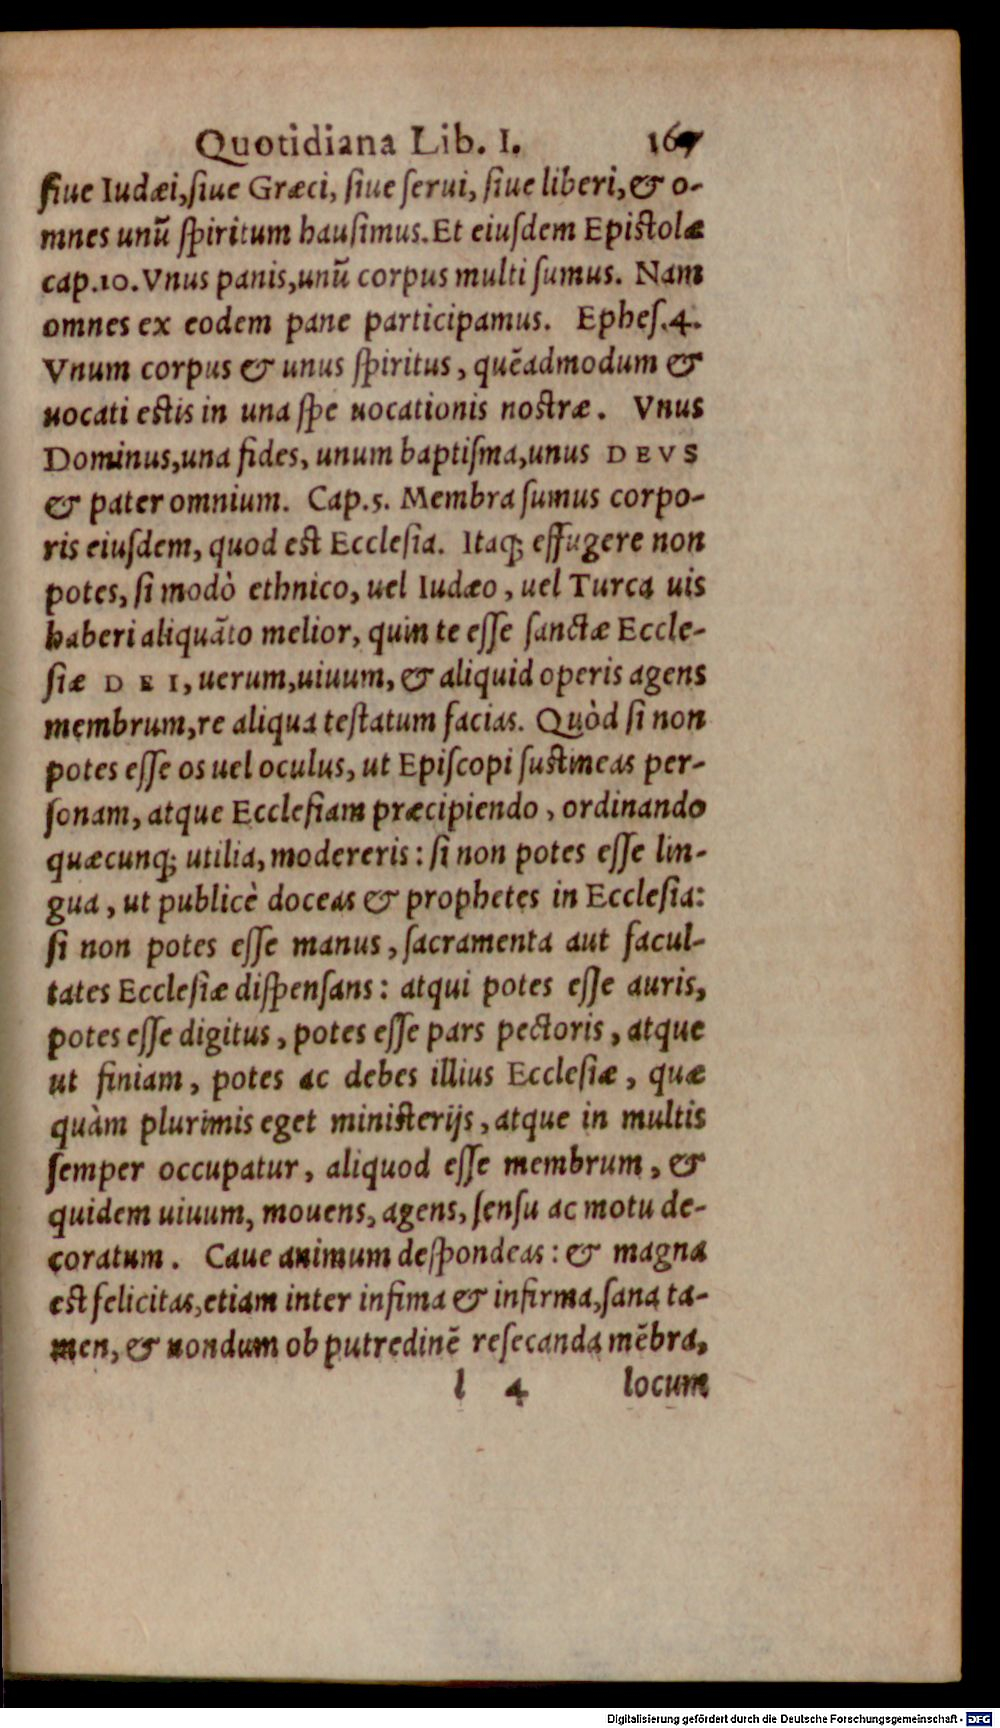 Quotidiana Lib. I. 167
ſiue Iudæi, ſiue Græci, ſiue ſerui, ſiue liberi, & o-
mnes unũ ſpiritum hauſimus. Et eiuſdem Epistolæ
cap. 10. Vnus panis, unũ corpus multi ſumus. Nam
omnes ex eodem pane participamus. Epheſ. 4.
Vnum corpus & unus ſpiritus, quẽadmodum &
uocati estis in una ſpe uocationis nostræ. Vnus
Dominus, una fides, unum baptiſma, unus DEVS
& pater omnium. Cap. 5. Membra ſumus corpo-
ris eiuſdem, quod est Eccleſia. Itaq; effugere non
potes, ſi modò ethnico, uel Iudæo, uel Turca uis
haberi aliquãto melior, quin te eſſe ſanctæ Eccle-
ſiæ DEI, uerum, uiuum, & aliquid operis agens
membrum, re aliqua teſtatum facias. Quòd ſi non
potes eſſe os uel oculus, ut Epiſcopi ſustineas per-
ſonam, atque Eccleſiam præcipiendo, ordinando
quæcunq; utilia, modereris: ſi non potes eſſe lin-
gua, ut publicè doceas & prophetes in Eccleſia:
ſi non potes eſſe manus, ſacramenta aut facul-
tates Eccleſiæ diſpenſans: atqui potes eſſe auris,
potes eſſe digitus, potes eſſe pars pectoris, atque
ut finiam, potes ac debes illius Eccleſiæ, quæ
quàm plurimis eget ministerijs, atque in multis
ſemper occupatur, aliquod eſſe membrum, &
quidem uiuum, mouens, agens, ſenſu ac motu de-
coratum. Caue animum deſpondeas: & magna
est felicitas, etiam inter infima & infirma, ſana ta-
men, & nondum ob putredinẽ reſecanda mẽbra,
l 4 locum
Digitalisierung gefördert durch die Deutsche Forschungsgemeinschaft - DFG